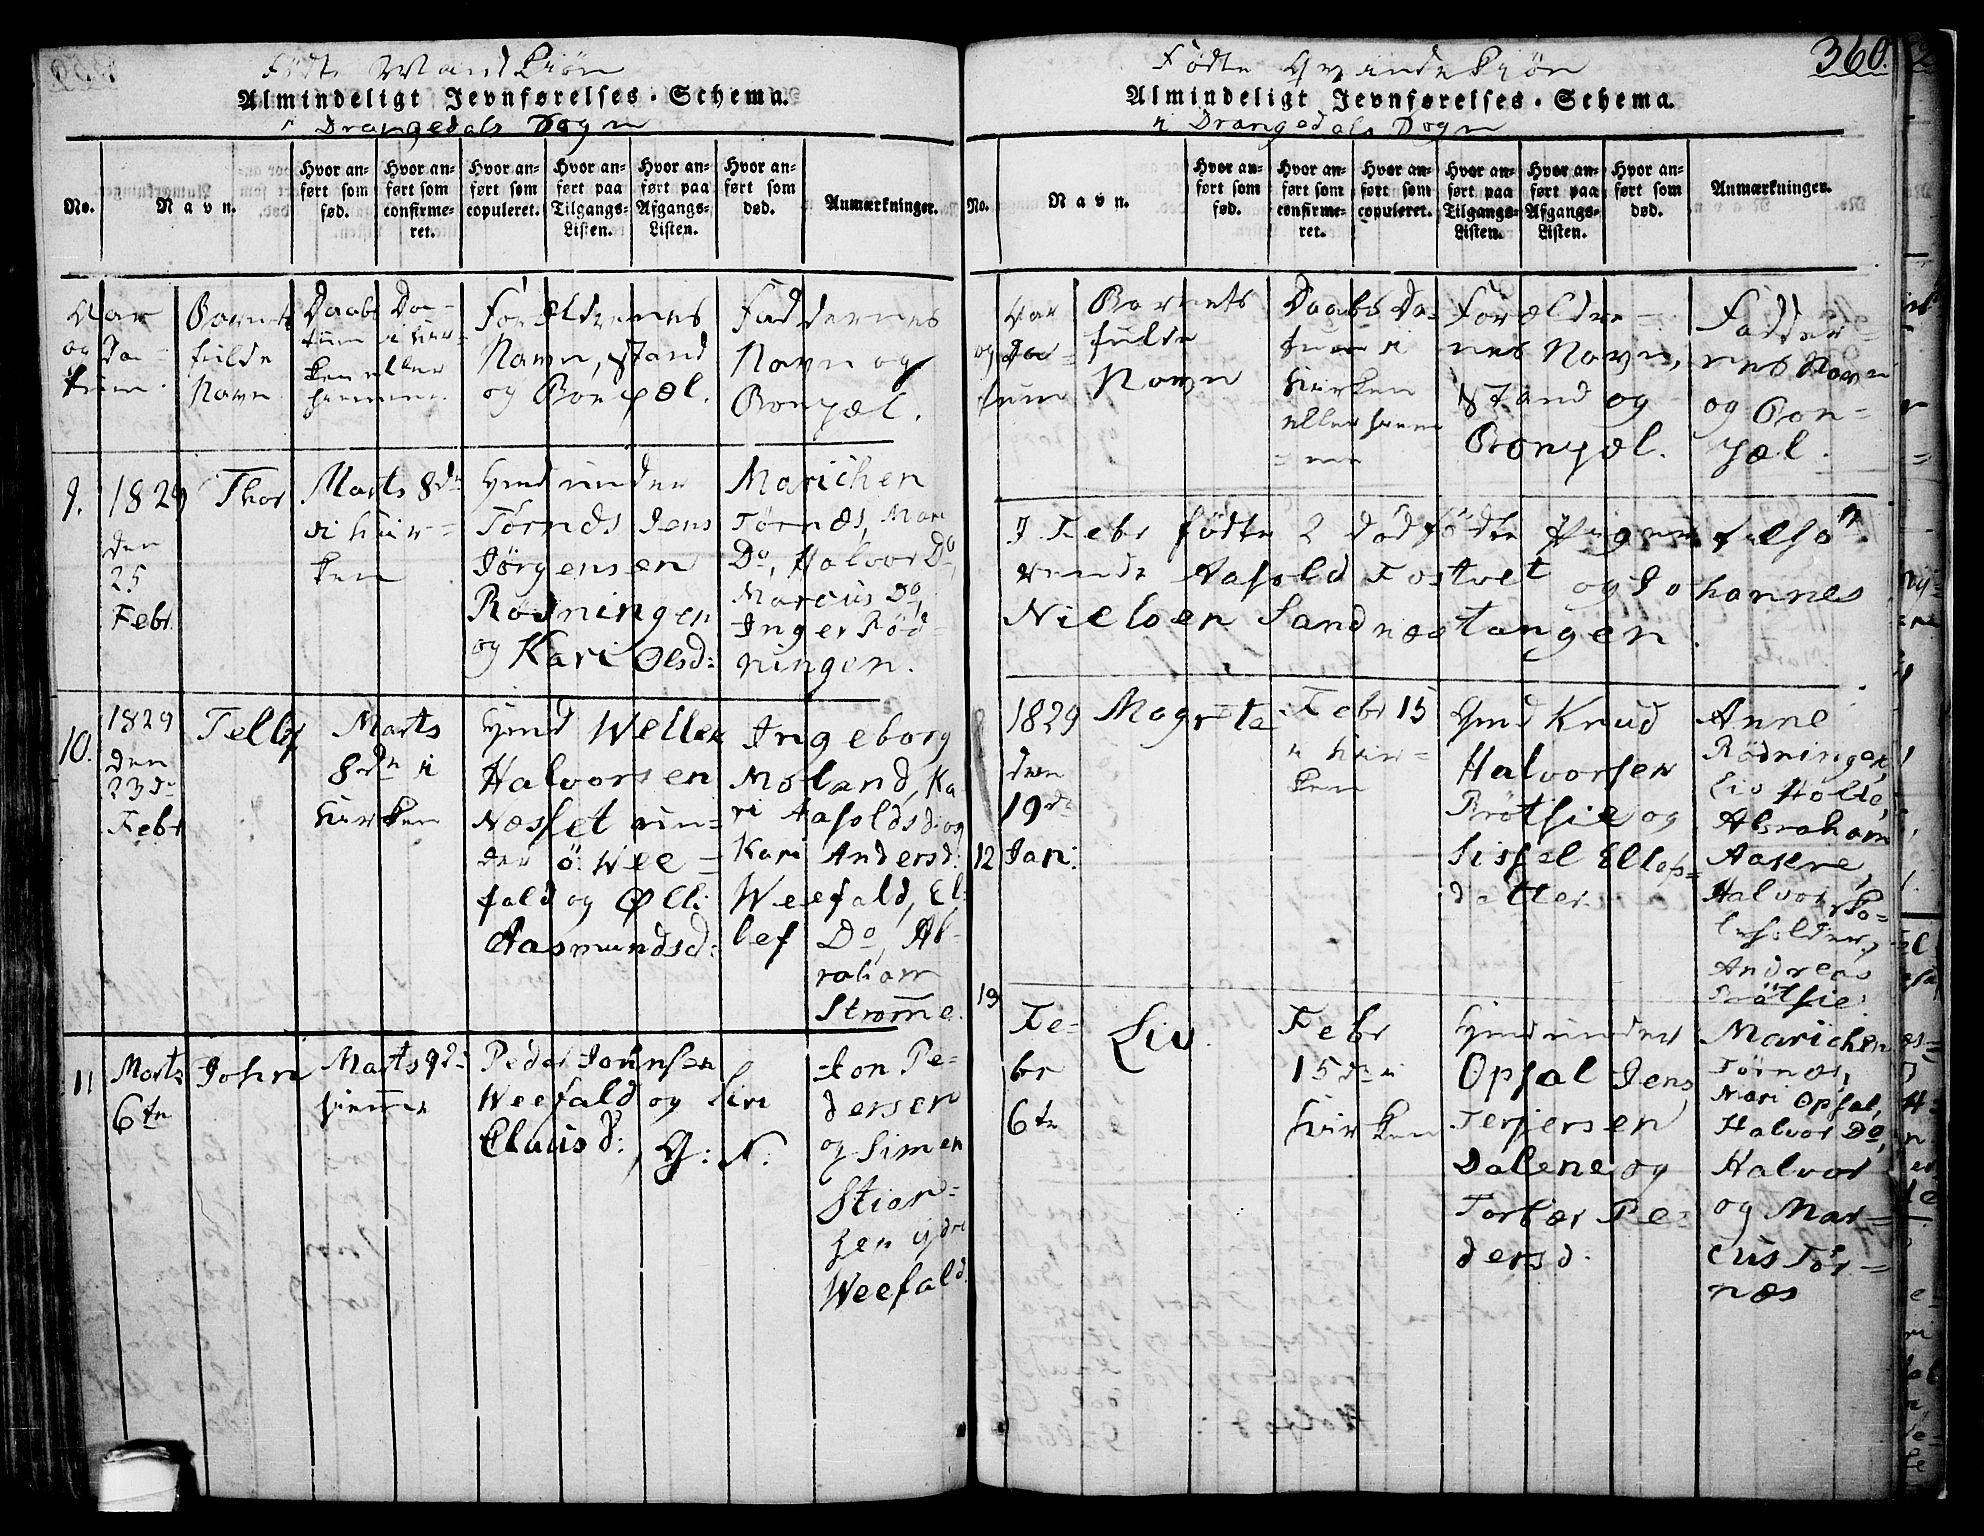 Fødte Mandkiøn
Almindeligt Jevnførelses-Schema.
i Drangedals Sogn
No.
Navn.
Hvor anført som fød.
Hvor anført som confirmeret.
Hvor anført som copuleret.
Hvor anført paa Tilgangs-Listen.
Hvor anført paa Afgangs-Listen.
Hvor anført som død.
Anmærkninger.
Aar
og Da-
tum.
Barnets
fulde
Navn
Daabs Da-
tum i kir-
ken eller
hiemme.
Forældrenes
Navn, Stand
og Bopæl.
Faddernes
Navn og
Bopæl.
9.
1829
den
25
Febr.
Thor
Marts 8de
i kir-
ken
Hmd under
Törnes Jens
Jörgensen
Rødningen
og Kari Olsd:
Marichen
Törnæs, Mari
Do, Halvor Do,
Marcus Do,
Inger Rød-
ningen.
10.
1829
den
23de
Febr
Tellef
Marts
8de i
kirken
Hmd Wellek
Halvorsen
Næsset un-
der ö: Wee-
fald og Ølli
Aasmundsd:
Ingeborg
Moland, Ka
ri Aasoldsd: og
Kari Andersd:
Weefald, El-
lef Do, Ab-
raham
Strømme.
11
Marts
6te
John
Marts 9de
hiemme
Peder Johnsen
Weefald og Siri
Clausd: G: N:
Jon Pe-
dersen
og Simen
Stian-
sen ydre
Weefald.
Fødte Qvindekiøn
360.
Almindeligt Jevnførelses-Schema.
i Drangedals Sogn
No.
Navn.
Hvor anført som fød.
Hvor anført som confirmeret.
Hvor anført som copuleret.
Hvor anført paa Tilgangs-Listen.
Hvor anført paa Afgangs-Listen.
Hvor anført som død.
Anmærkninger.
Aar
og Da-
tum
Barnets
fulde
Navn
Daabs Da-
tum i
kirken
eller hiem-
me
Forældre-
nes Navn,
Stand og
Bopæl.
Fadder-
nes Navn
og Bo-
pæl.
I Febr fødte 2 dødfødte Piger tilhø-
rende Aasold Tostvet og Johannes
Nielsen Sandnæstangen.
12
1829
den
19de
Jan:
Magrete
Febr 15
i kir-
ken
Hmd Knud
Halvorsen
Brötsie og
Sissel Ellefs-
datter
Anne
Rödningen,
Liv Holte,
Abraham
Aasene,
Halvor
Andreas
Brötsie.
13
Fe-
br
6te
Liv
Febr
15de i
kirken
Hmd under
Opsal Jens
Terjersen
Dalene og
Torbør Pe-
dersd.
Marichen
Törnæs,
Mari Opsal,
Halvor Do,
Halvor
og Mar-
cus Tör-
næs